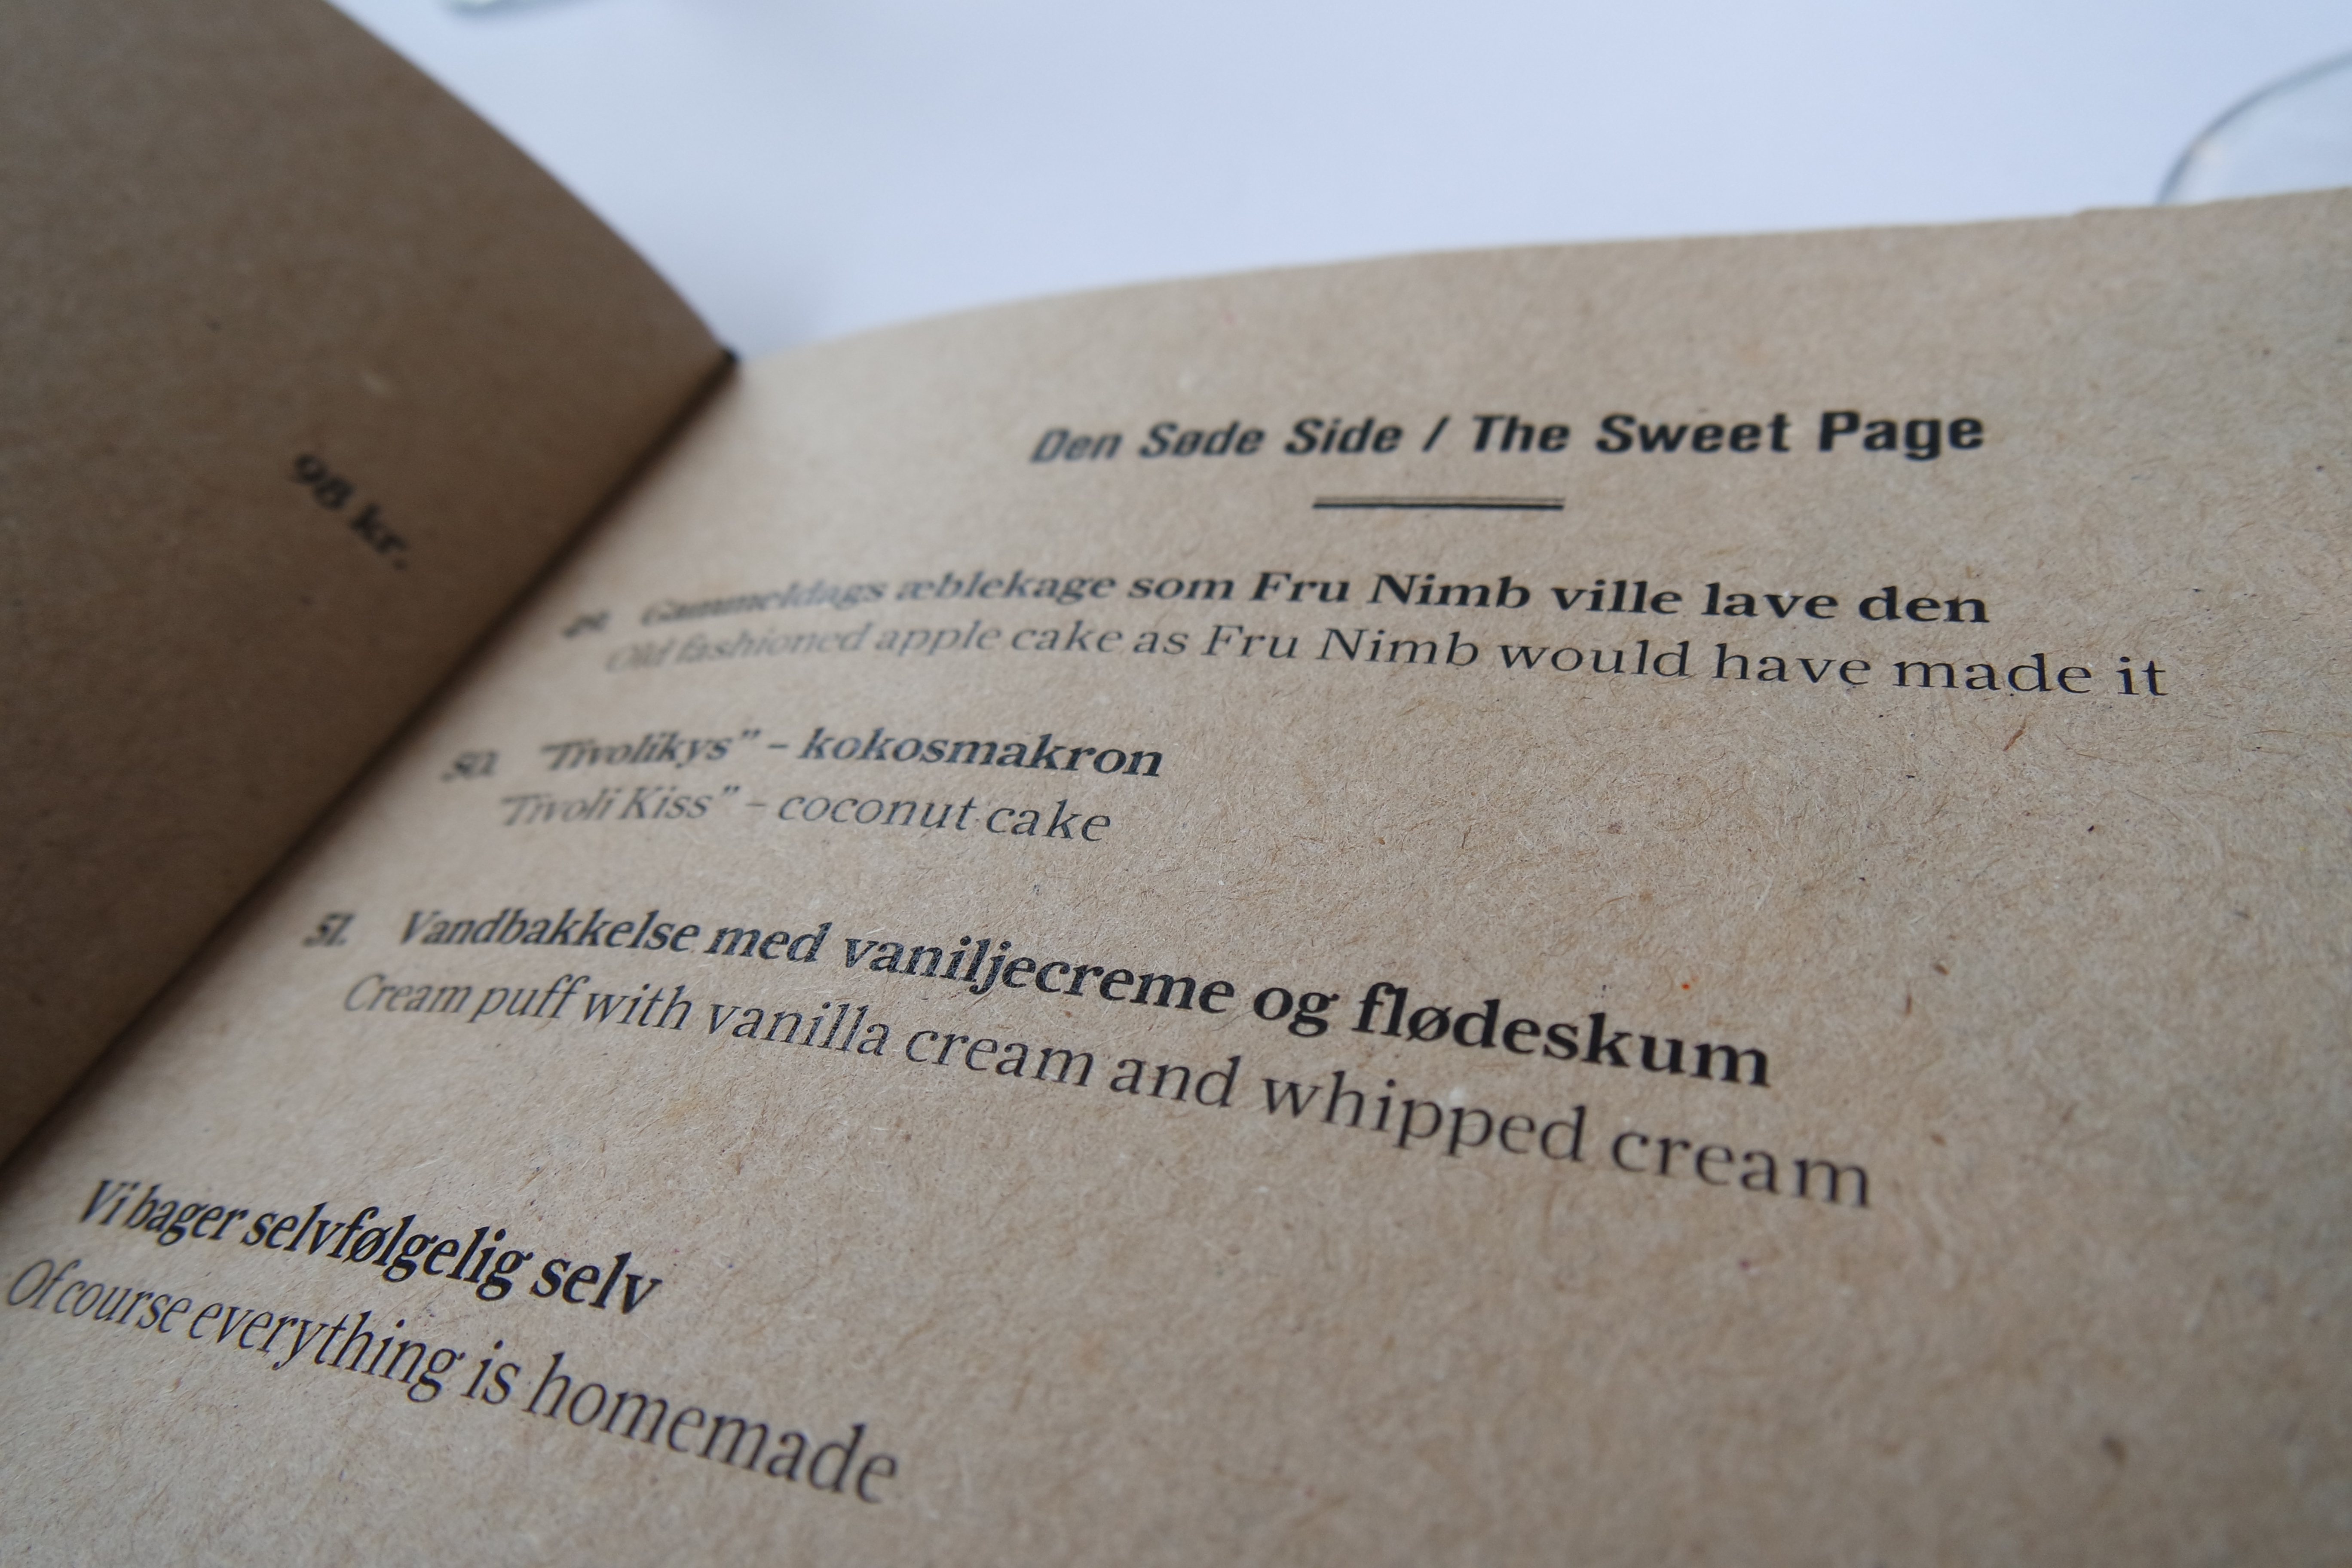 98 kr.
Den Søde Side / The Sweet Page
49. Gammeldags æblekage som Fru Nimb ville lave den
Old fashioned apple cake as Fru Nimb would have made it
50. "Tivolikys" – kokosmakron
"Tivoli Kiss" – coconut cake
51. Vandbakkelse med vaniljecreme og flødeskum
Cream puff with vanilla cream and whipped cream
Vi bager selvfølgelig selv
Of course everything is homemade